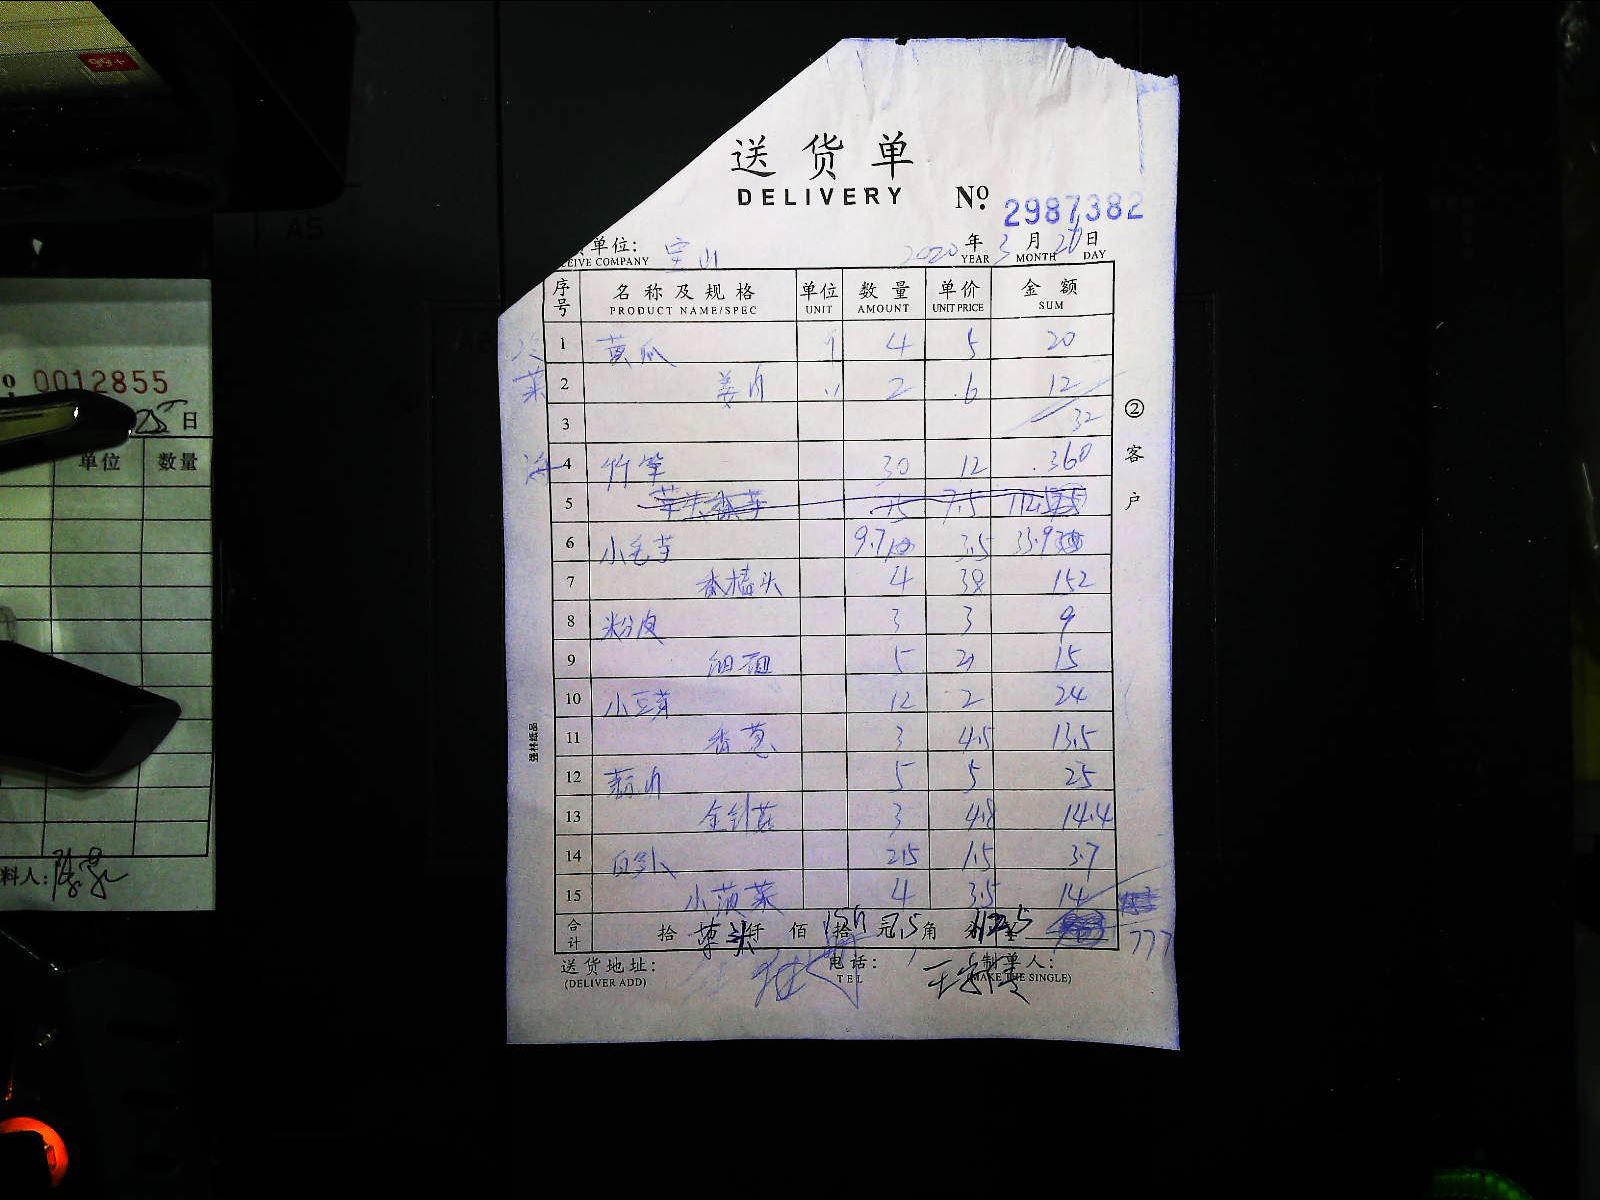 99+
送货单
DELIVERY
No. 2987382
单位: 宝山 2020年3月20日
CEIVE COMPANY YEAR MONTH DAY
序号 名称及规格 单位 数量 单价 金额
PRODUCT NAME/SPEC UNIT AMOUNT UNIT PRICE SUM
1 黄瓜 个 4 5 20
菜
2 姜片 2 6 12
3 32
4 竹笋 30 12 360
5 15 7.5 112.5
6 小毛芋 9.7 3.5 33.9
7 杏榄头 4 38 152
8 粉皮 3 3 9
9 5 15
10 小豆芽 12 2 24
11 香葱 3 4.5 13.5
12 5 5 25
13 金针菇 3 4.8 14.4
14 白萝卜 2.5 1.5 3.7
15 小菠菜 4 3.5 14
合计 拾 仟 佰 拾 元 角 112.5
777
送货地址: 电话: 制单人:
(DELIVER ADD) TEL (MAKE THE SINGLE)
②客户
强林纸品
0012855
25日
单位 数量
料人:
A5